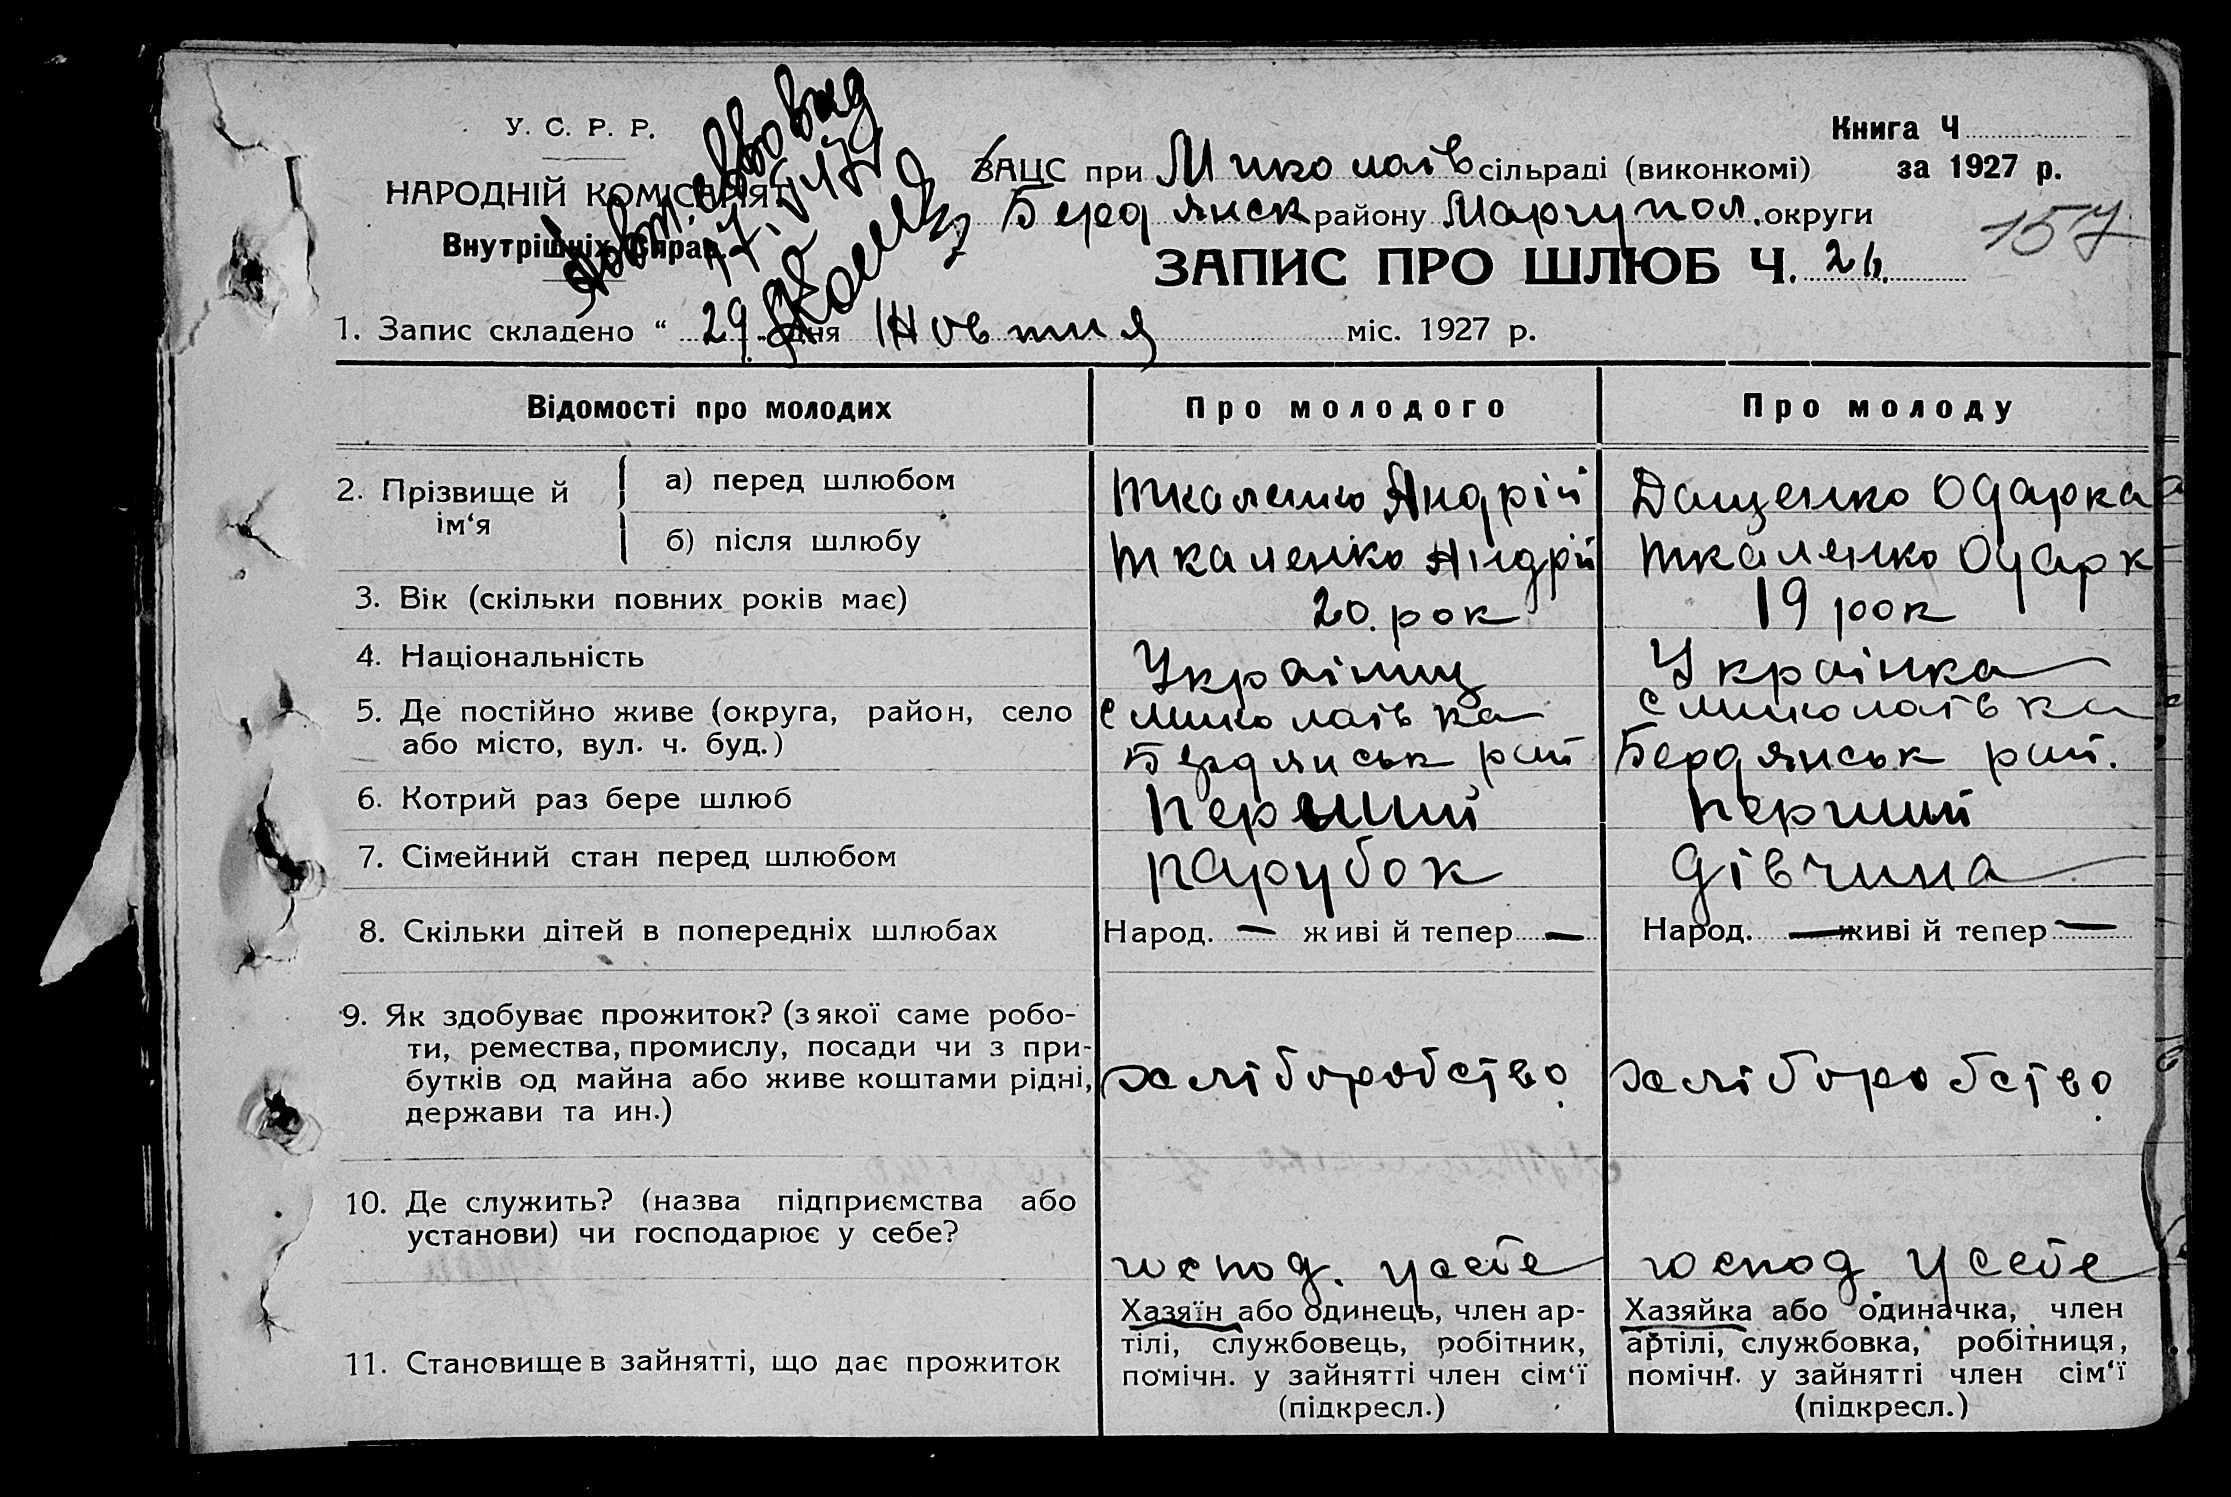 У. С. Р. Р.
НАРОДНІЙ КОМІСАРІЯТ
Внутрішніх Справ.
Книга Ч
ЗАЦС при Миколаїв сільраді (виконкомі) за 1927 р.
Бердянск району Маріупол. округи
157
ЗАПИС ПРО ШЛЮБ Ч. 26.
1. Запис складено “ 29 „ дня Жовтня міс. 1927 р.
Відомості про молодих Про молодого Про молоду
2. Прізвище й ім‘я
а) перед шлюбом Ткаленко Андрій Дащенко Одарка
б) після шлюбу Ткаленко Андрій Ткаленко Одарк
3. Вік (скільки повних років має) 20. рок 19 рок
4. Національність Українць Українка
5. Де постійно живе (округа, район, село с Миколаївка с Миколаївка
або місто, вул. ч. буд.) Бердянськ рай Бердянськ рай.
6. Котрий раз бере шлюб перший перший
7. Сімейний стан перед шлюбом парубок дівчина
8. Скільки дітей в попередніх шлюбах Народ. — живі й тепер — Народ. — живі й тепер —
9. Як здобуває прожиток? (з якої саме робо-
ти, ремества, промислу, посади чи з при-
бутків од майна або живе коштами рідні, хліборобство хліборобство
держави та ин.)
10. Де служить? (назва підприємства або
установи) чи господарює у себе? господ. у себе господ у себе
11. Становище в зайнятті, що дає прожиток
Хазяїн або одинець, член ар-
тілі, службовець, робітник,
помічн. у зайнятті член сім‘ї
(підкресл.)
Хазяйка або одиначка, член
артілі, службовка, робітниця,
помічн. у зайнятті член сім‘ї
(підкресл.)